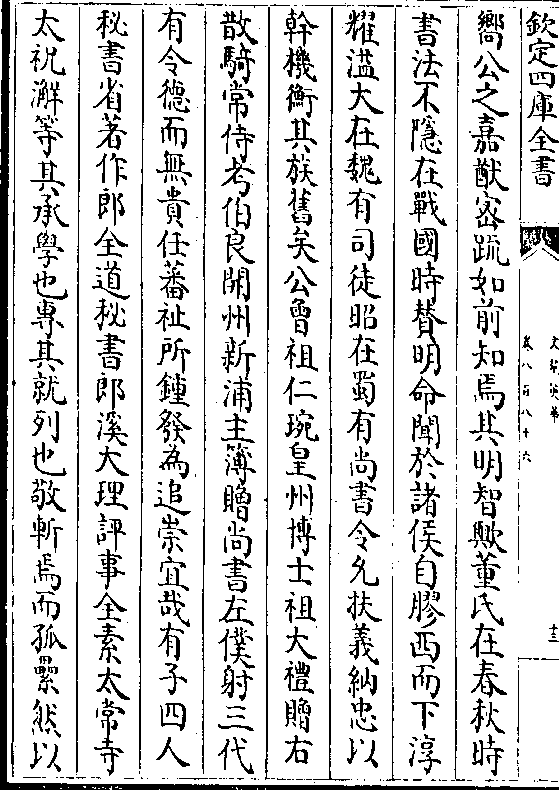 欽定四庫全書
文苑英華
卷八百八十六
十三
嚮公之嘉猷密疏如前知焉其明智歟董氏在春秋時
書法不隱在戰國時賛明命聞於諸侯自膠西而下淳
耀溢大在魏有司徒昭在蜀有尚書令允扶義納忠以
幹機衡其族舊矣公曾祖仁琬皇州博士祖大禮贈右
散騎常侍考伯良開州新浦主簿贈尚書左僕射三代
有令德而無貴任蕃祉所鍾發為追崇宜哉有子四人
秘書省著作郎全道秘書郎溪大理評事全素太常寺
太祝澥等其承學也專其就列也敬斬焉而孤纍然以